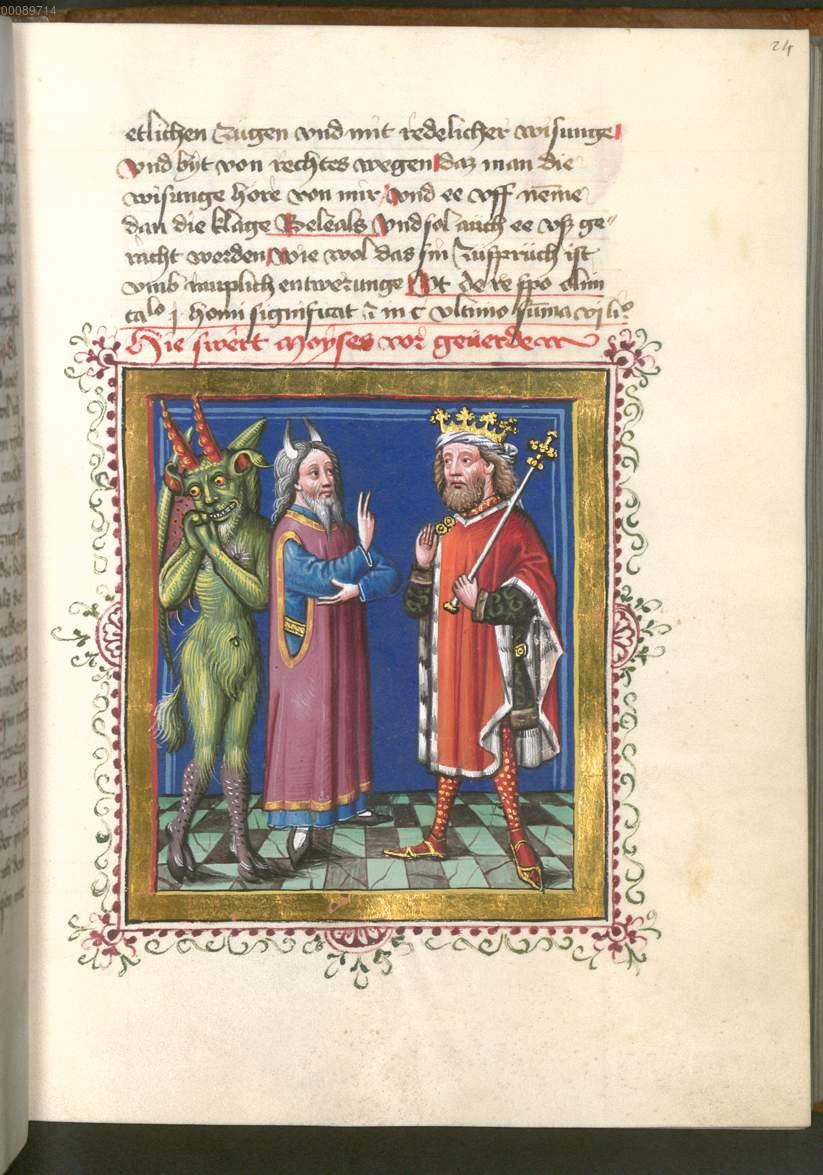 00089714
24
etlichen zůgen vnd mit redelicher wisunge
Vnd byt von rechtes wegen daz man die
wisunge hore von mir Vnd ee vff neme
dan die klage Beleals Vnd sol auch ee vß ge„
richt werden Wie wol das sin züsprüch ist
vmb entwerunge Vt de re spo olim
j homi significat in c vltimo vi li
Hie swert Moyses vor geuerde